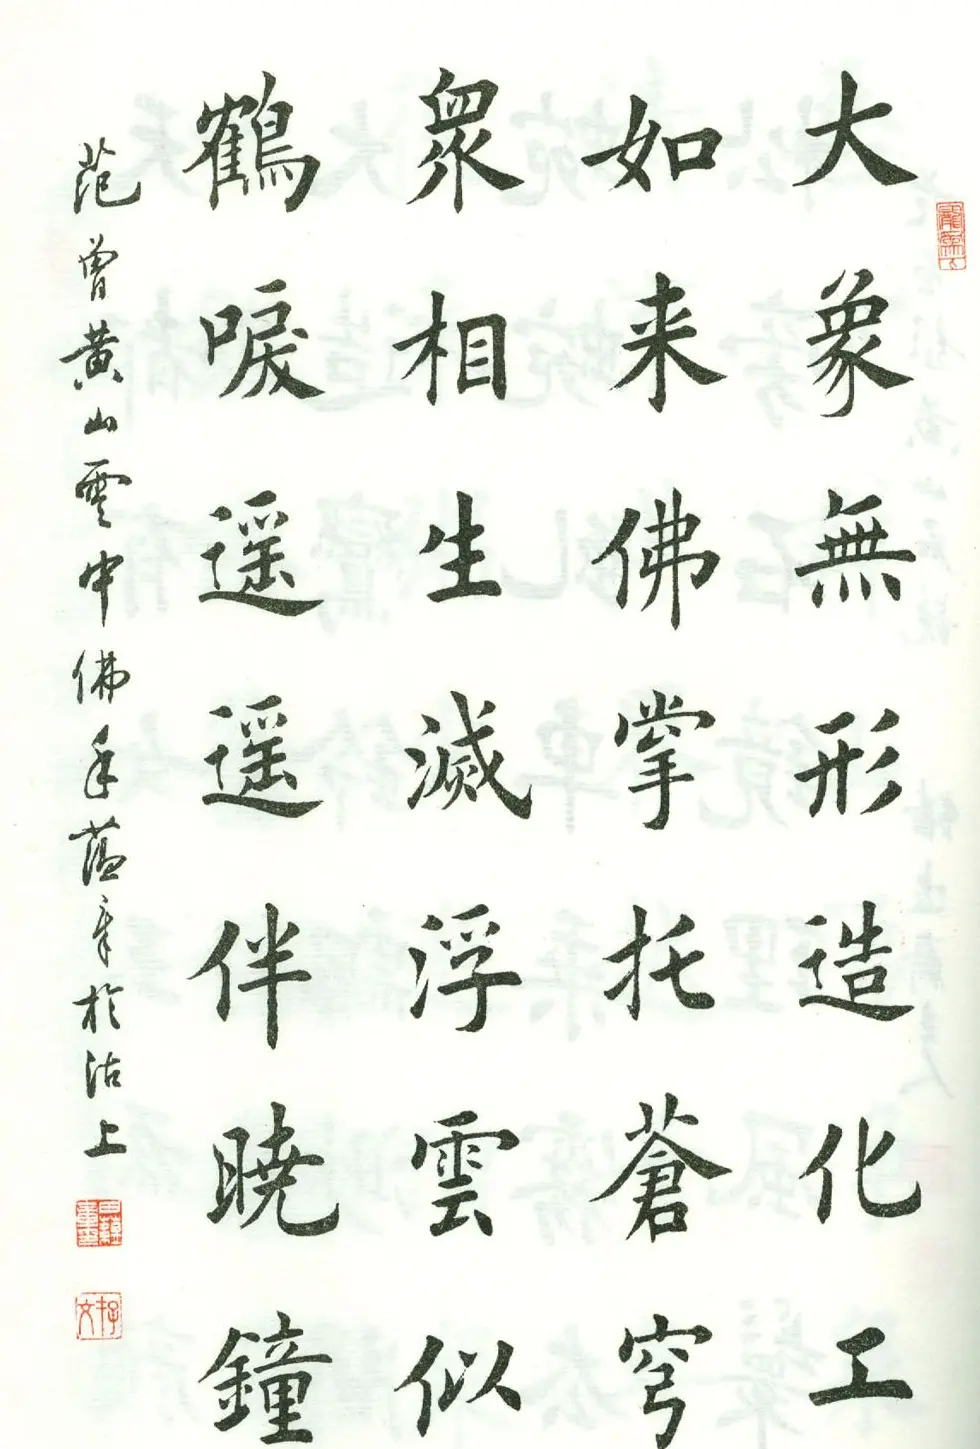 大象無形造化工
如来佛掌托蒼穹
衆相生滅浮雲似
鶴唳遥遥伴曉鐘
范曾黄山雲中佛手藴章於沽上